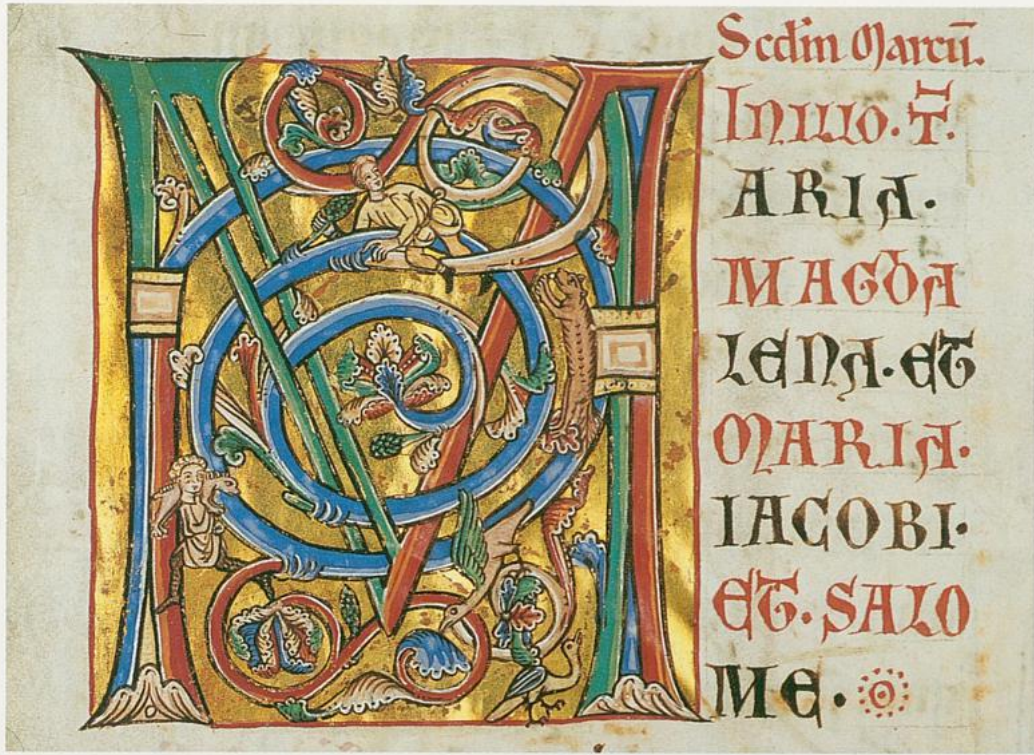 Scdm Marcū.
IN ILLO. T̄.
M
ARIA.
MAGDA
LENA. ET
MARIA.
IACOBI.
ET. SALO
ME.